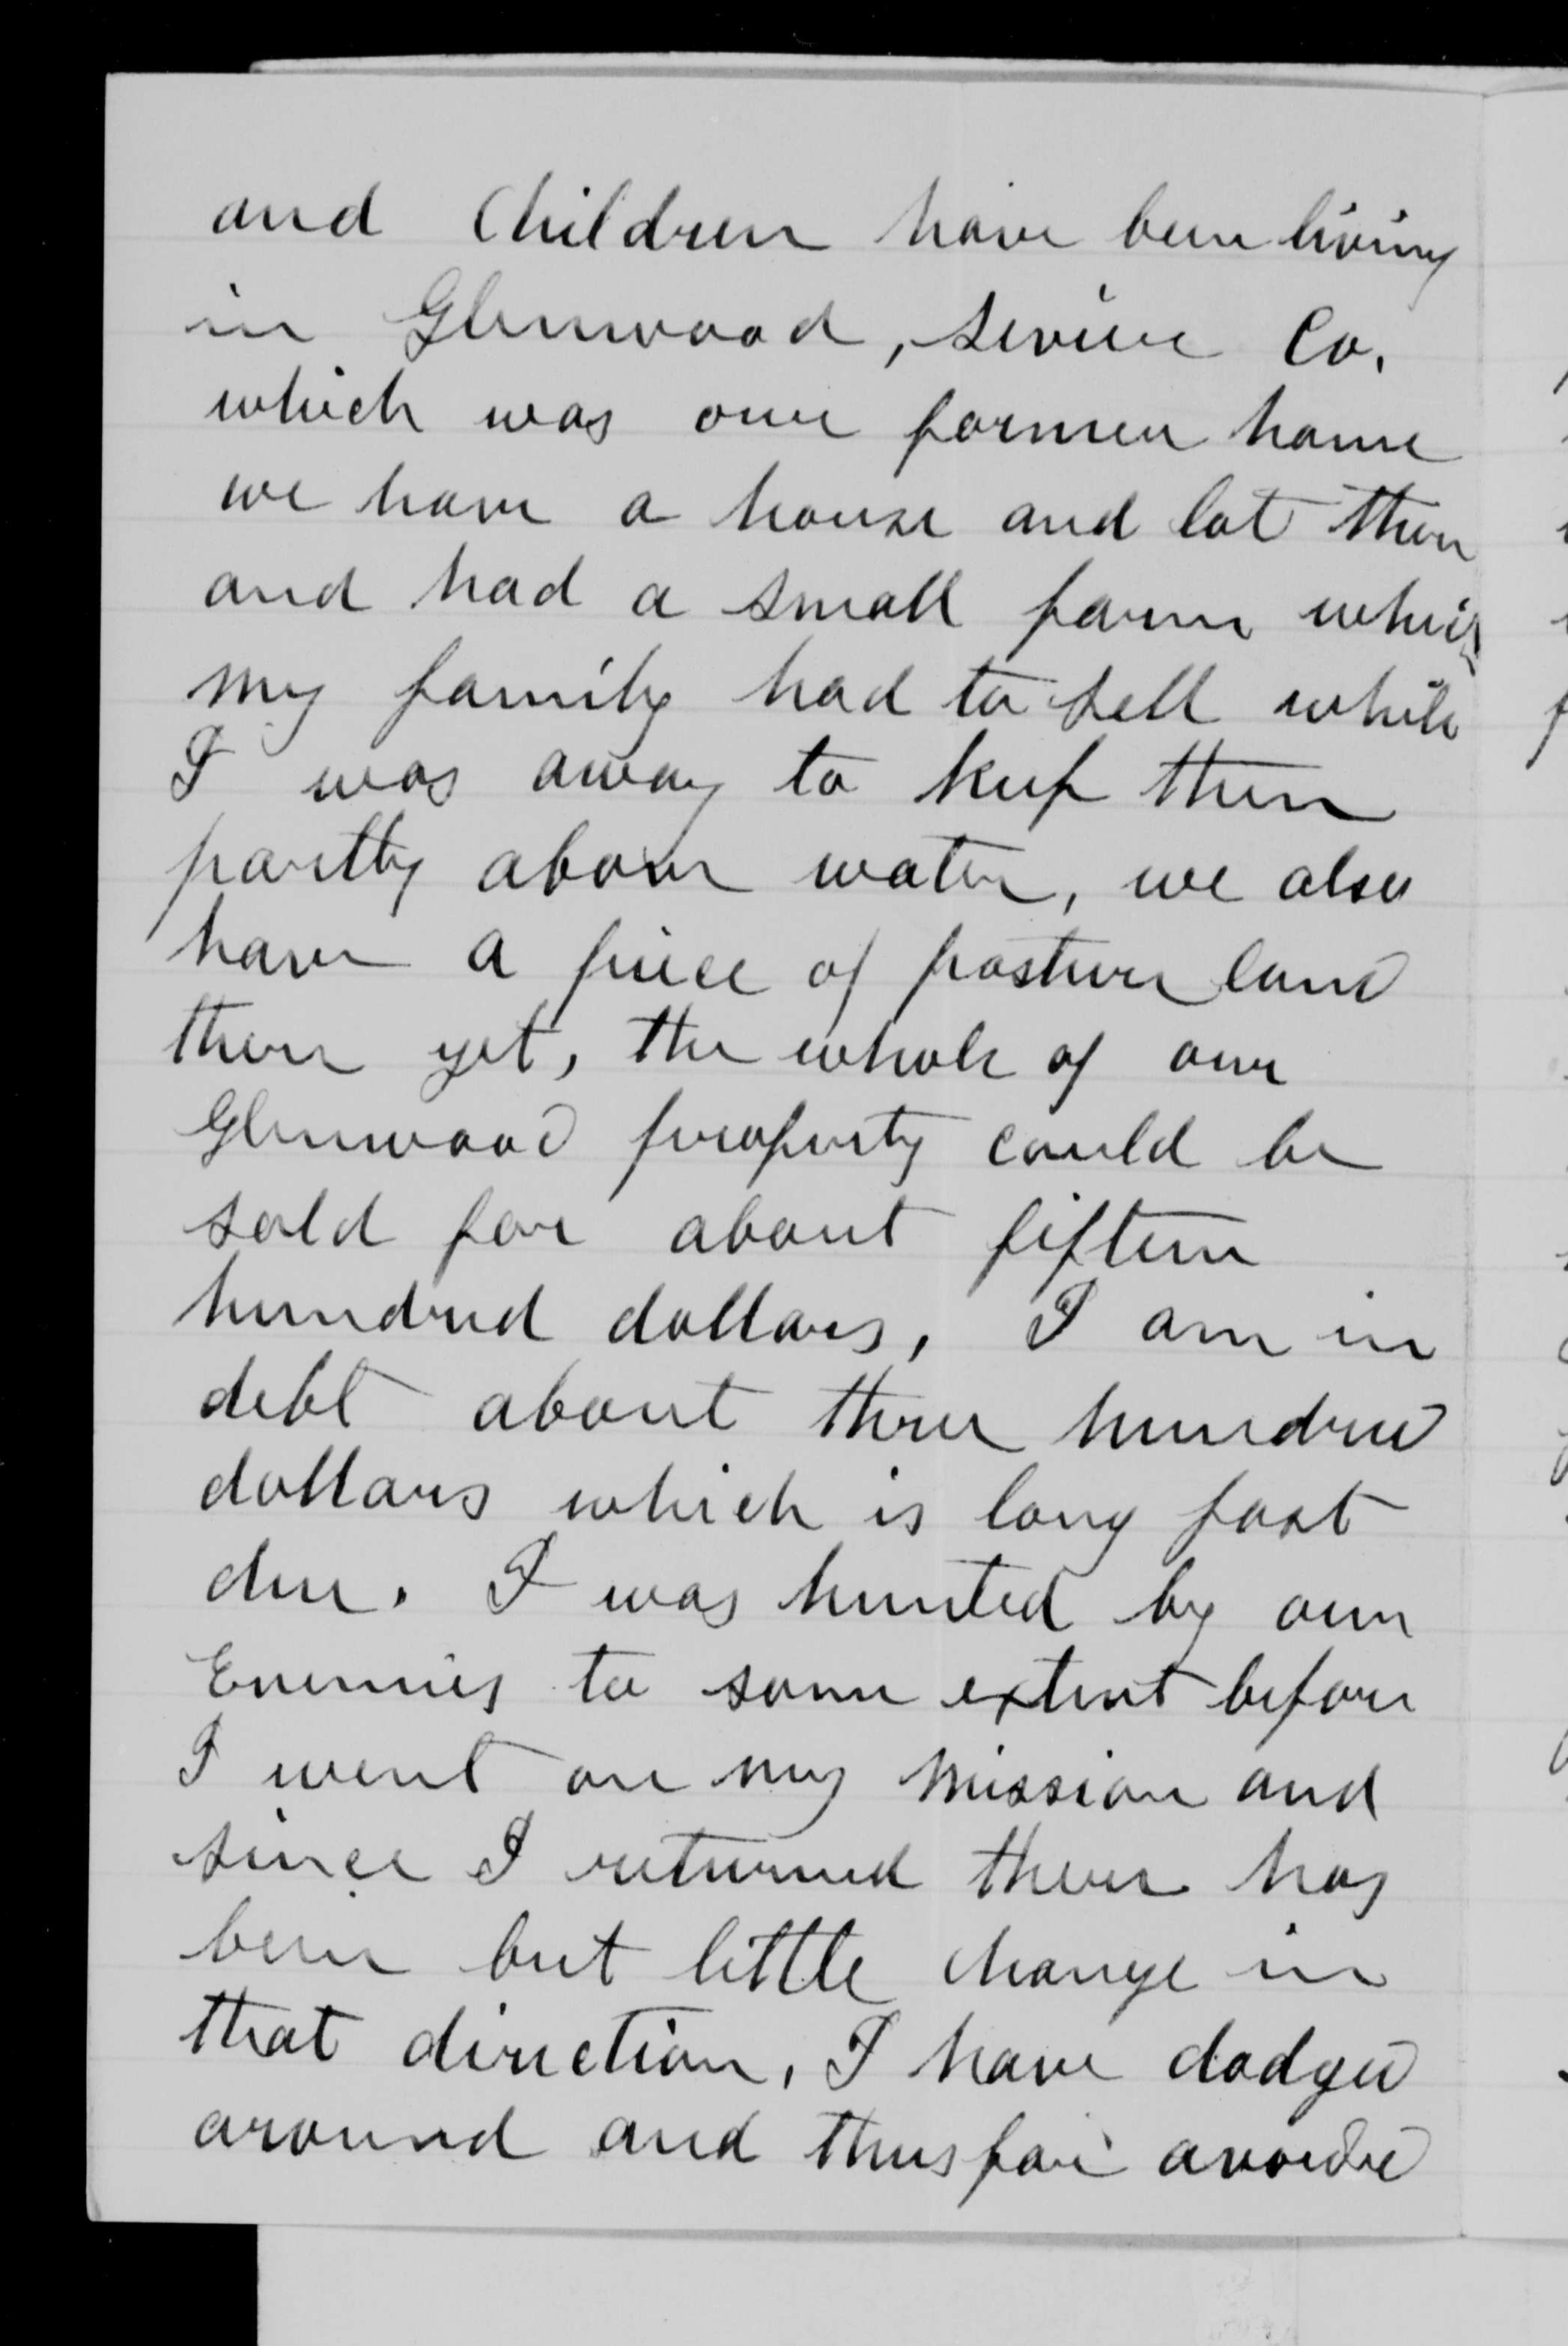 and Children have been living
in Glenwood, Sevier Co.
which was our former home
we have a house and lot there
and had a small farm which
my family had to sell while
I was away to keep them
partly above water, we also
have a piece of pasture land
there yet, the whole of our
Glenwood property could be
sold for about fifteen
hundred dollars, I am in
debt about three hundred
dollars which is long past
due. I was hunted by our
Enemies to some extent before
I went on my mission and
since I returned there has
been but little change in
that direction, I have dodged
around and thus far avoided